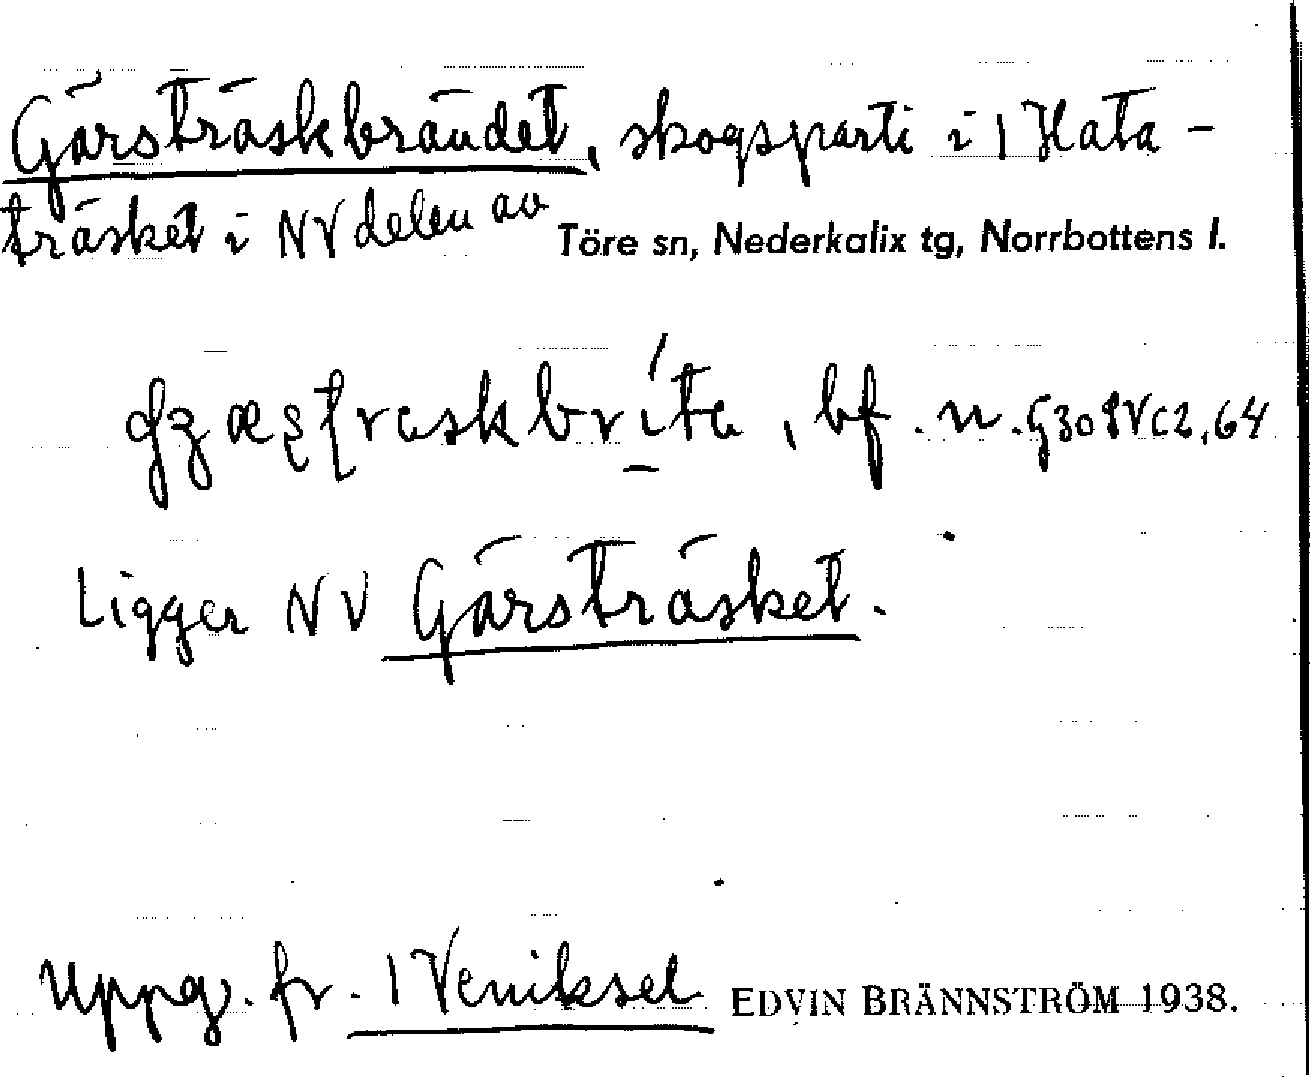 Gärsträskbrändet, skogsparti i 1 Hata-
träsket i NV delen av Töre sn, Nederkalix tg, Norrbottens l.
bf. n. G308Vc2,64
Ligger NV Gärsträsket.
Uppg. fr. 1 Veniksel EDVIN BRÄNNSTRÖM 1938.